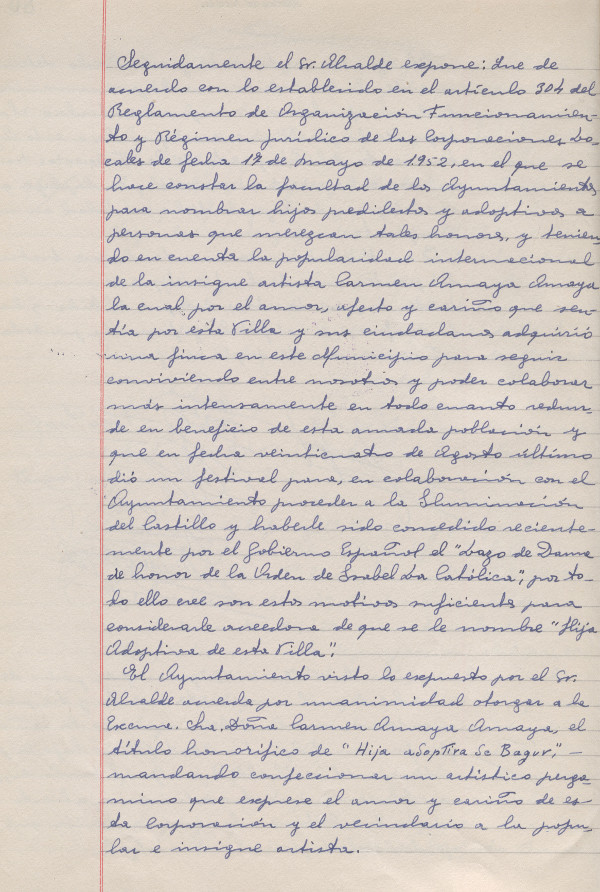 Seguidamente el Sr. Alcalde expone: Que de
acuerdo con lo establecido en el artículo 304 del
Reglamento de Organización Funcionamien-
to y Régimen jurídico de las Corporaciones Lo-
cales de fecha 17 de mayo de 1952, en el que se
hace constar la facultad de los Ayuntamientos
para nombrar hijos predilectos y adoptivos a
personas que merezcan tales honores, y tenien-
do en cuenta la popularidad internacional
de la insigne artista Carmen Amaya Amaya
la cual, por el amor, afecto y cariño que sen-
tía por esta Villa y sus ciudadanos adquirió
una finca en este Municipio para seguir
conviviendo entre nosotros y poder colaborar
más intensamente en todo cuanto redun-
de en beneficio de esta amada población y
que en fecha veinticuatro de Agosto último
dió un festival para, en colaboración con el
Ayuntamiento proceder a la Iluminación
del Castillo y haberle sido concedido reciente-
mente por el Gobierno Español el "Lazo de Dama
de honor de la Orden de Isabel La Católica", por to-
do ello cree son estos motivos suficientes para
considerarle acreedora de que se le nombre "Hija
Adoptiva de esta Villa".
El Ayuntamiento visto lo expuesto por el Sr.
Alcalde acuerda por unanimidad otorgar a la
Excma. Sra. Doña Carmen Amaya Amaya, el
título honorífico de "Hija adoptiva de Bagur", —
mandando confeccionar un artístico perga-
mino que exprese el amor y cariño de es-
ta corporación y el vecindario a la popu-
lar e insigne artista.